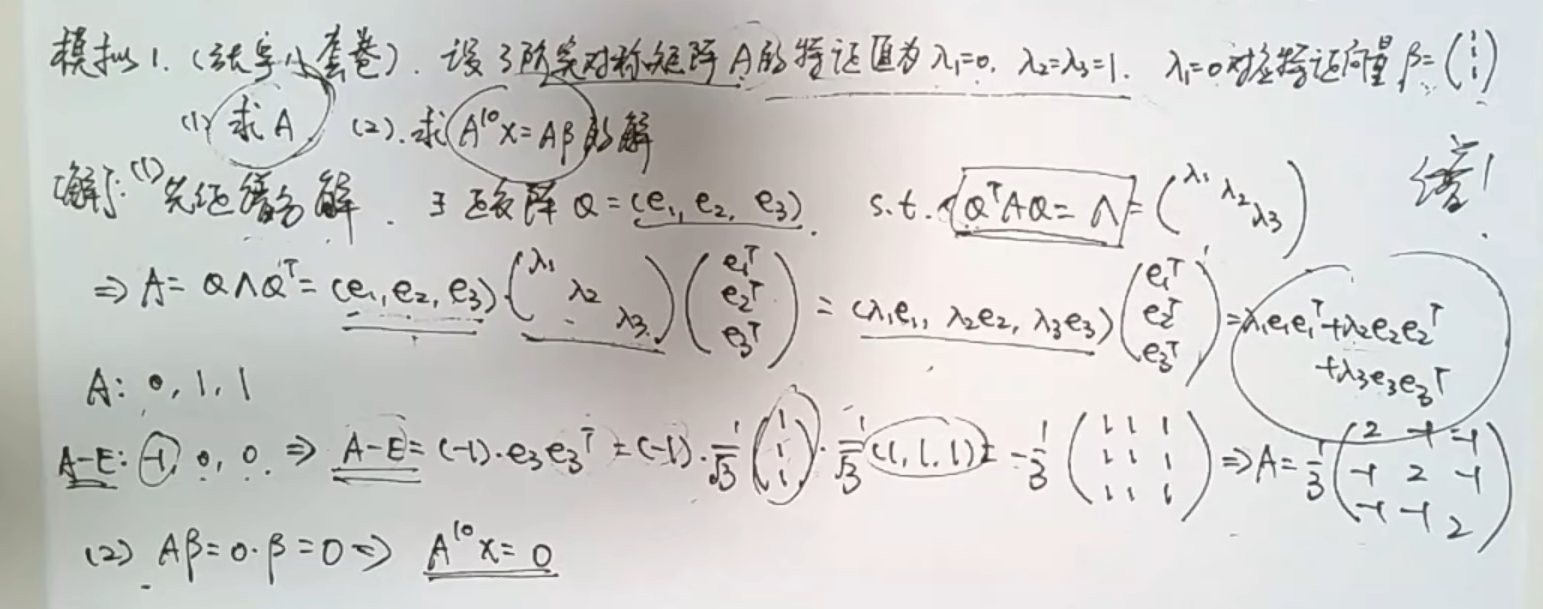 模拟1.(张宇八套卷). 设3阶实对称矩阵A的特征值为λ₁=0. λ₂=λ₃=1. λ₁=0对应特征向量β=(1 1 1)
(1) 求A. (2).求A¹⁰x=Aβ的解
[解]:(1)先证谱分解. ∃正交阵Q=(e₁, e₂, e₃). s.t. QᵀAQ=Λ=(λ₁ λ₂ λ₃) 谱!
⇒A=QΛQᵀ=(e₁,e₂,e₃)(λ₁ λ₂ λ₃)(e₁ᵀ e₂ᵀ e₃ᵀ)=(λ₁e₁, λ₂e₂, λ₃e₃)(e₁ᵀ e₂ᵀ e₃ᵀ)=λ₁e₁e₁ᵀ+λ₂e₂e₂ᵀ+λ₃e₃e₃ᵀ
A: 0, 1, 1
A-E: -1, 0, 0. ⇒ A-E=(-1)·e₃e₃ᵀ=(-1)·1/√3(1 1 1)·1/√3(1,1,1)=-1/3(1 1 1 1 1 1 1 1 1)⇒A=1/3(2 -1 -1 -1 2 -1 -1 -1 2)
(2) Aβ=0·β=0⇒ A¹⁰x=0